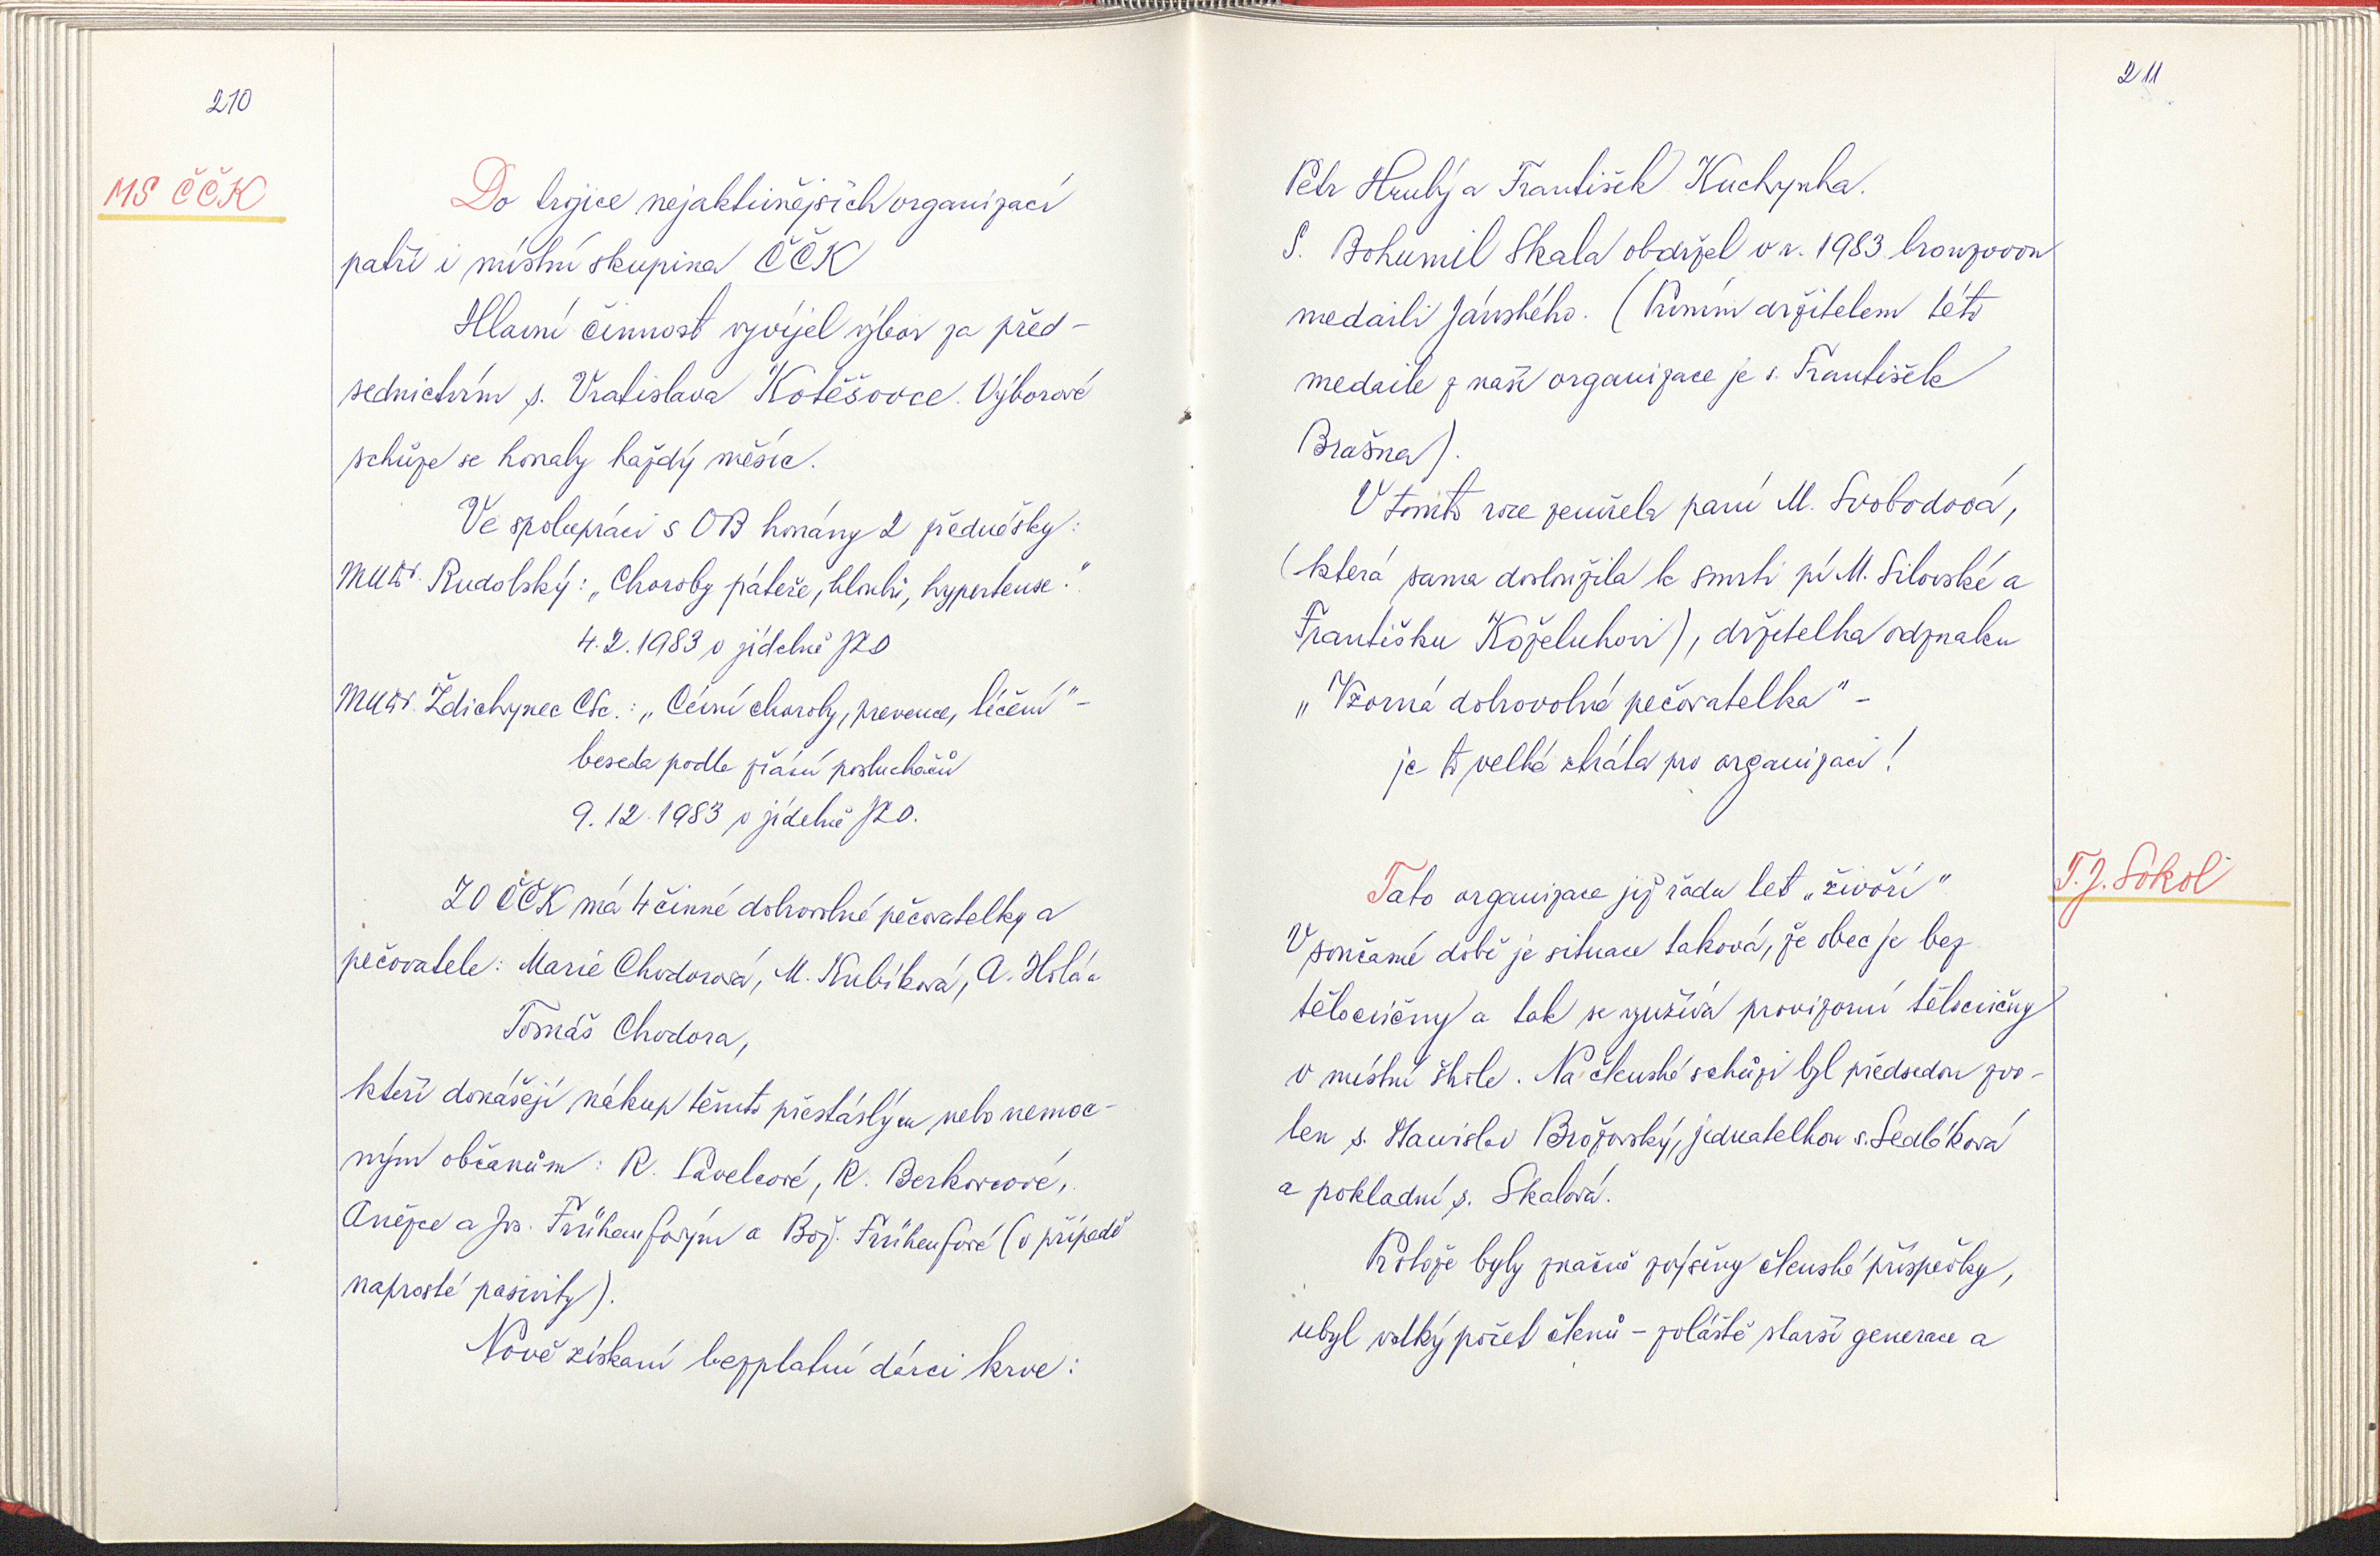 210
MS ČČK
Do trojice nejaktivnějších organizací
patří i místní skupina ČČK
Hlavní činnost vyvíjel výbor za před-
sednictvím s. Vratislava Kotěšovce. Výborové
schůze se konaly každý měsíc.
Ve spolupráci s OB konány 2 přednášky:
MUDr. Rudolský: „Choroby páteře, kloubů, hypertense."
4.2.1983 v jídelně JZD
MUDr. Ždichynec CSc.: „Cévní choroby, prevence, léčení" -
beseda podle přání posluchačů
9.12.1983 v jídelně JZD.
ZO ČČK má 4 činné dobrovolné pečovatelky a
pečovatele: Marie Chodorová, M. Kubíková, A. Holá a
Tomáš Chodora,
kteří donášejí nákup těmto přestárlým nebo nemoc-
ným občanům: R. Pavelcové, R. Berkovcové,
Anežce a Jos. Frühaufovým a Bož. Frühaufové (v případě
naprosté pasivity).
Nově získaní bezplatní dárci krve:
211
Petr Hrubý a František Kuchynka.
S. Bohumil Skala obdržel v r. 1983 bronzovou
medaili Jánského. (Prvním držitelem této
medaile z naší organizace je s. František
Brašna).
V tomto roce zemřela paní M. Svobodová,
(která sama dosloužila k smrti pí M. Silovské a
Františku Koželuhovi), držitelka odznaku
„Vzorná dobrovolná pečovatelka" -
je to velká ztráta pro organizaci!
T.J. Sokol
Tato organizace již řadu let „živoří"
V současné době je situace taková, že obec je bez
tělocvičny a tak se využívá provizorní tělocvičny
v místní škole. Na členské schůzi byl předsedou zvo-
len s. Stanislav Brožovský, jednatelkou s. Sedláková
a pokladní s. Skalová.
Protože byly značně zvýšeny členské příspěvky,
ubyl velký počet členů - zvláště starší generace a